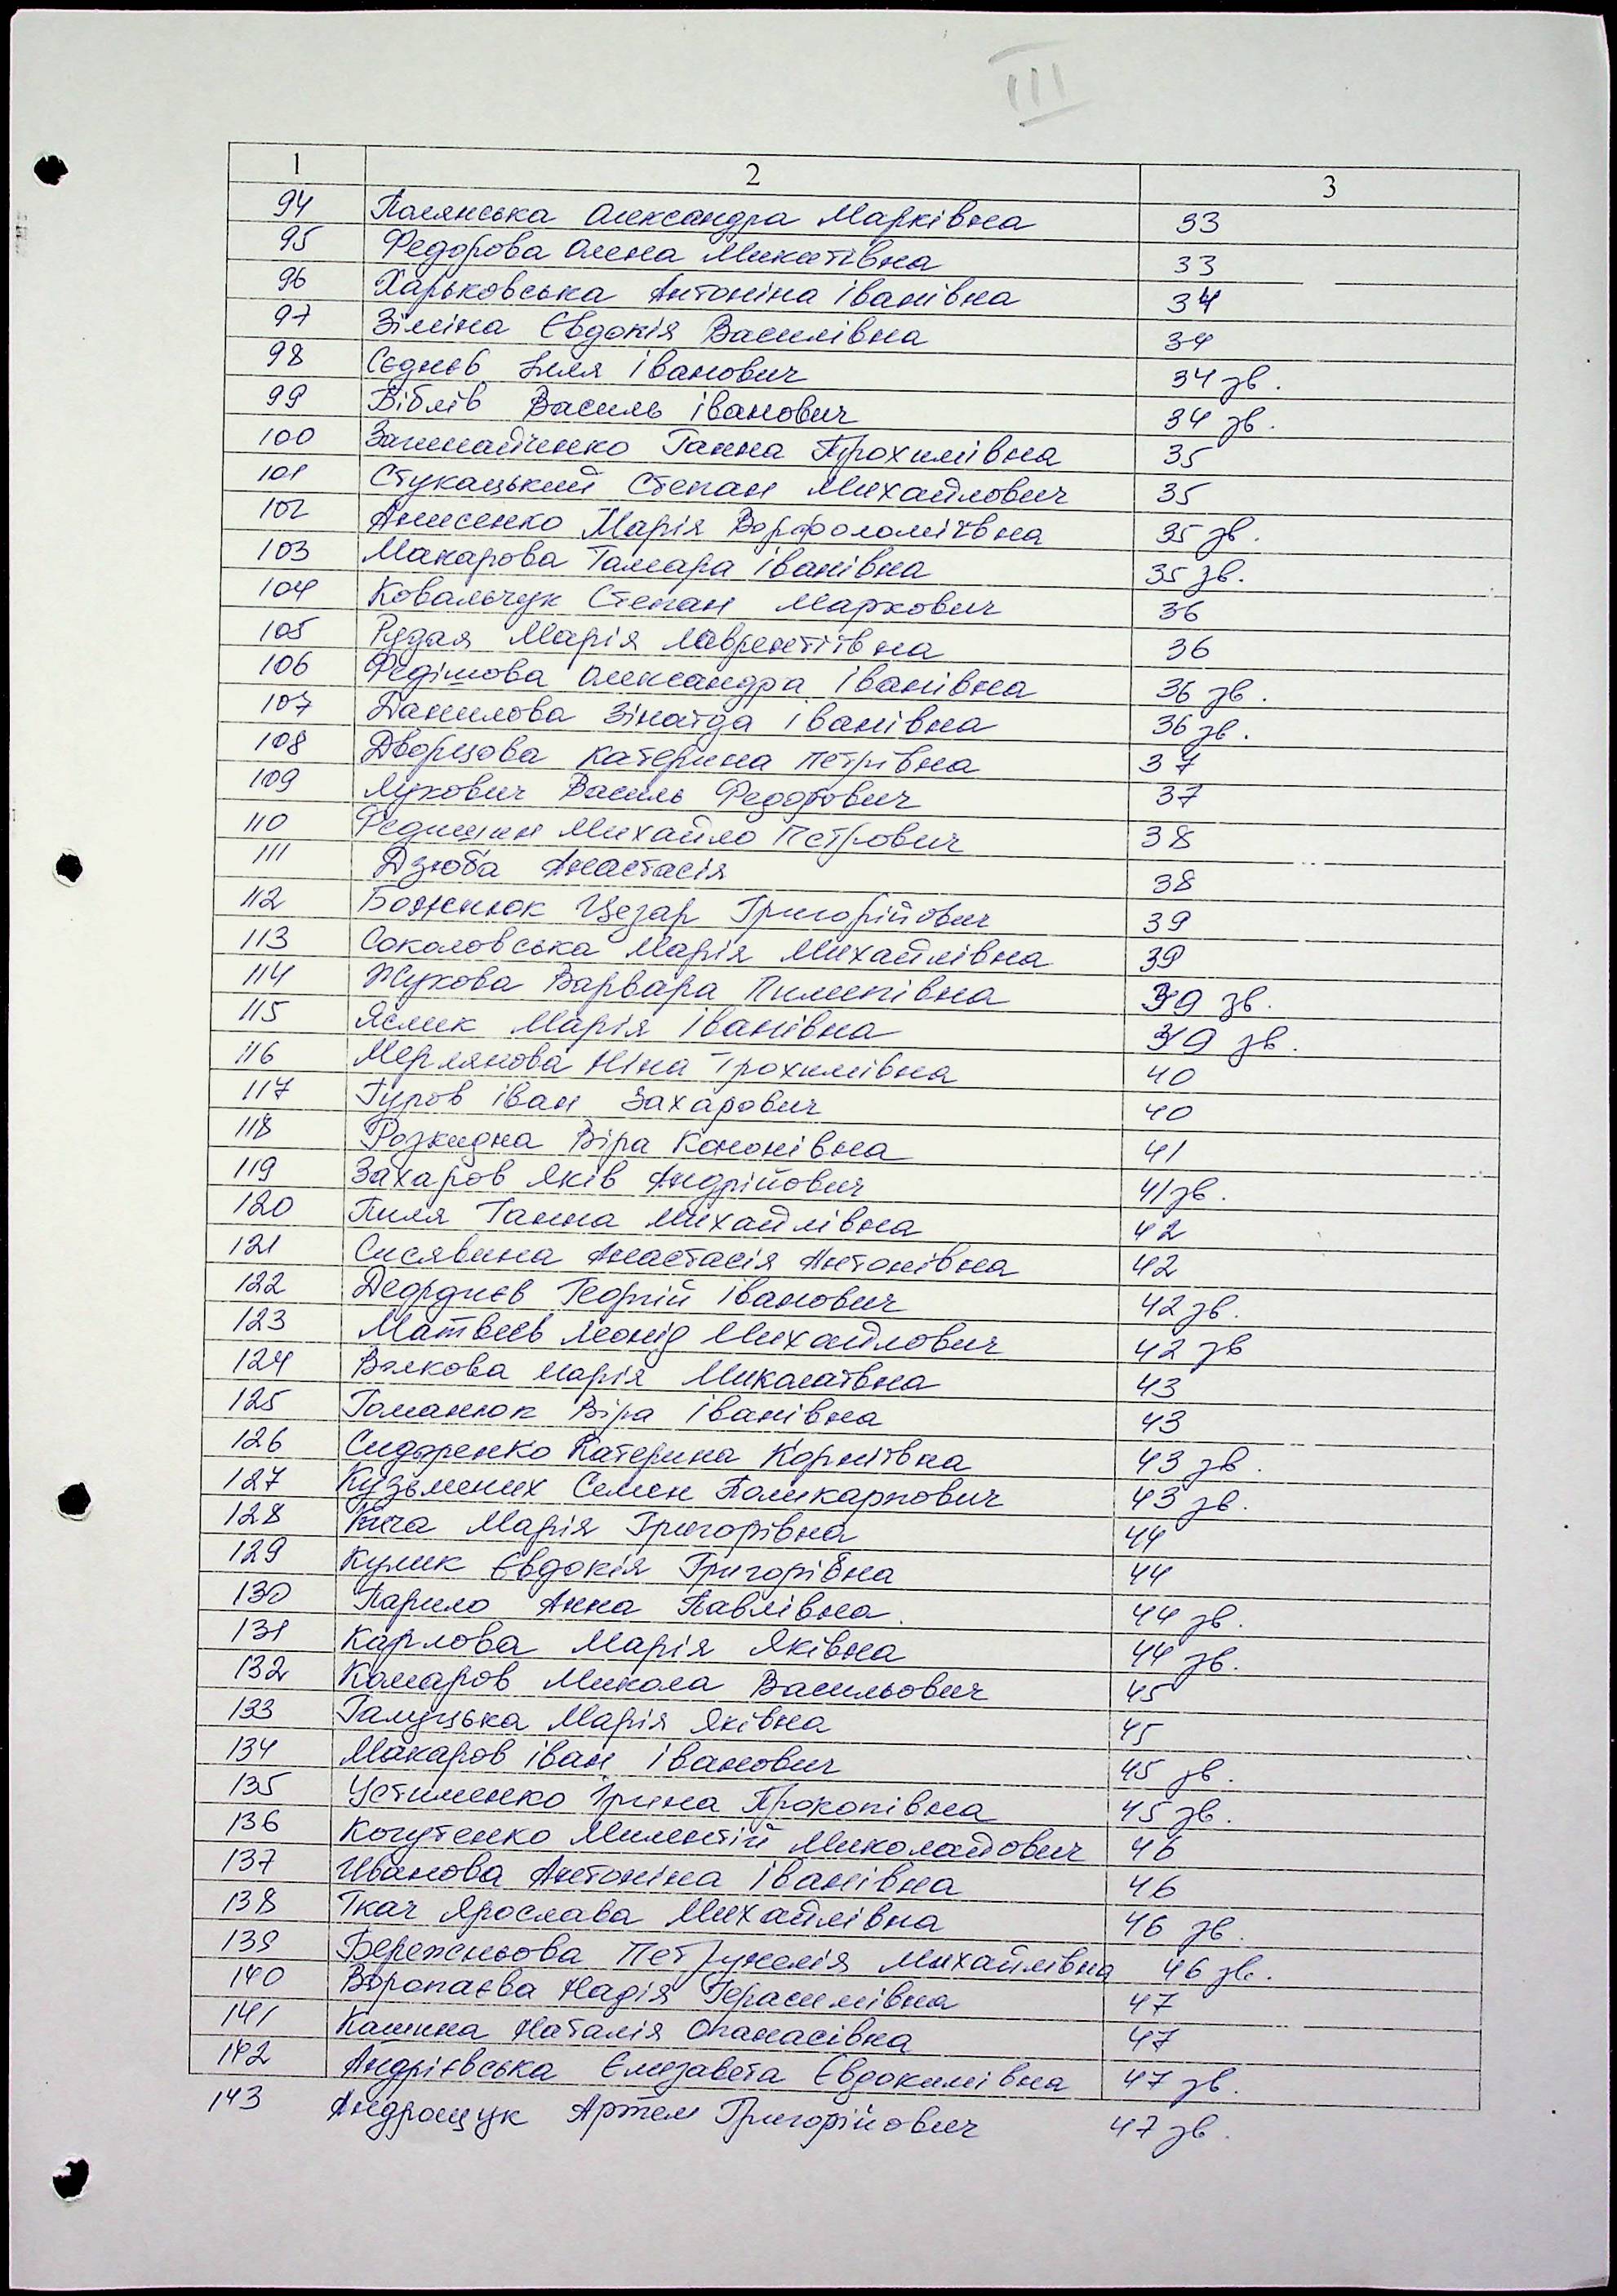 III
1 2 3
94 Полянська Олександра Марківна 33
95 Федорова Олена Микитівна 33
96 Харьковська Антоніна Іванівна 34
97 Зіміна Євдокія Василівна 34
98 Сєднєв Ілля Іванович 34 зв.
99 Віблів Василь Іванович 34 зв.
100 Ганна Трохимівна 35
101 Стукацький Степан Михайлович 35
102 Анисенко Марія Ворфоломіївна 35 зв.
103 Макарова Тамара Іванівна 35 зв.
104 Ковальчук Степан Маркович 36
105 Рудая Марія Лаврентіївна 36
106 Федішова Олександра Іванівна 36 зв.
107 Данилова Зінаїда Іванівна 36 зв.
108 Дворцова Катерина Петрівна 37
109 Лукович Василь Федотович 37
110 Федишин Михайло Петрович 38
111 Дзюба Анастасія 38
112 Божнюк Цезар Григорійович 39
113 Соколовська Марія Михайлівна 39
114 Жукова Варвара Пилипівна 39 зв.
115 Яслик Марія Іванівна 39 зв.
116 Мерлянова Ніна Трохимівна 40
117 Гуров Іван Захарович 40
118 Розкидна Віра Кононівна 41
119 Захаров Яків Андрійович 41 зв.
120 Пиля Ганна Михайлівна 42
121 Сисявина Анастасія Антонівна 42
122 Георгій Іванович 42 зв.
123 Матвєєв Леонід Михайлович 42 зв
124 Волкова Марія Миколаївна 43
125 Гоманюк Віра Іванівна 43
126 Сидоренко Катерина Корніївна 43 зв.
127 Кузьмених Семен Полікарпович 43 зв.
128 Марія Григорівна 44
129 Кулик Євдокія Григорівна 44
130 Парило Анна Павлівна. 44 зв.
131 Карлова Марія Яківна 44 зв.
132 Комаров Микола Васильович 45
133 Галуцька Марія Яківна 45
134 Макаров Іван Іванович 45 зв.
135 Устименко Ірина Прокопівна 45 зв.
136 Когутенко Милентій Миколайович 46
137 Иванова Антоніна Іванівна 46
138 Ткач Ярослава Михайлівна 46 зв.
139 Бережньова Петрунелія Михайлівна 46 зв.
140 Воропаєва Надія Герасимівна 47
141 Кашина Наталія Опанасівна 47
142 Андрієвська Єлизавета Євдокимівна 47 зв.
143 Андрощук Артем Григорійович 47 зв.